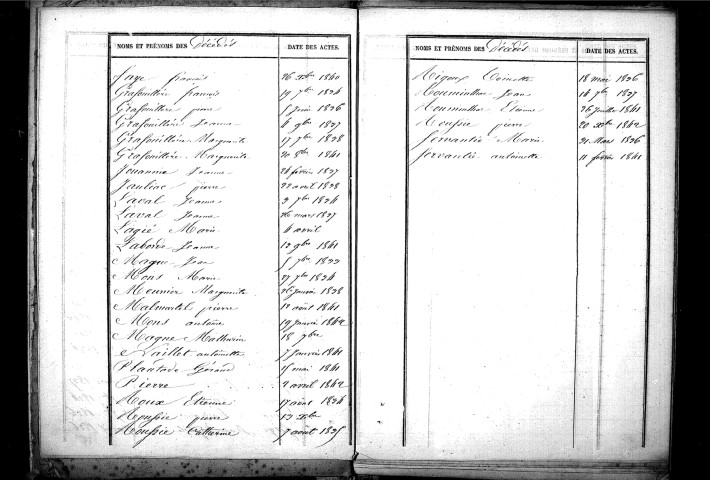 NOMS ET PRÉNOMS DES Décédés DATE DES ACTES.
françois 26 Xbre 1840
Grafouillère françois 19 7bre 1824
Grafouillère pierre 1826
Grafouillère Jeanne 6 9bre 1827
Grafouillère Marguerite 17 7bre 1828
Grafouillère Marguerite 20 8bre 1841
Jouanma Jeanne 24 février 1827
Jauliac pierre 22 avril 1828
Laval Jeanne 2 7bre 1824
Laval Jeanne 26 mars 1827
Lagié Marie 4 avril
Laborde Jeanne 12 9bre 1841
Magne Jean 5 7bre 1822
Mons Marie 27 7bre 1824
Meunier Marguerite 26 Janvier 1828
Malmartel pierre 12 août 1841
Mons antoine 19 Janvier 1842
Magne Mathurin 18 7bre
Naillet antoinette 7 Janvier 1841
Plantade Géraud 15 mai 1841
Pierre 2 avril 1842
Roux Etienne 17 août 1824
Roussie pierre 13 Xbre
Roussie Catherine 7 août 1825
NOMS ET PRÉNOMS DES Décédés DATE DES ACTES.
Rigoux Toinette 18 mai 1826
Jean 16 7bre 1827
Etienne 26 Juillet 1841
Roussie pierre 20 Xbre 1842
Servantie Marie 21 Mars 1826
Servantie antoinette 11 février 1841